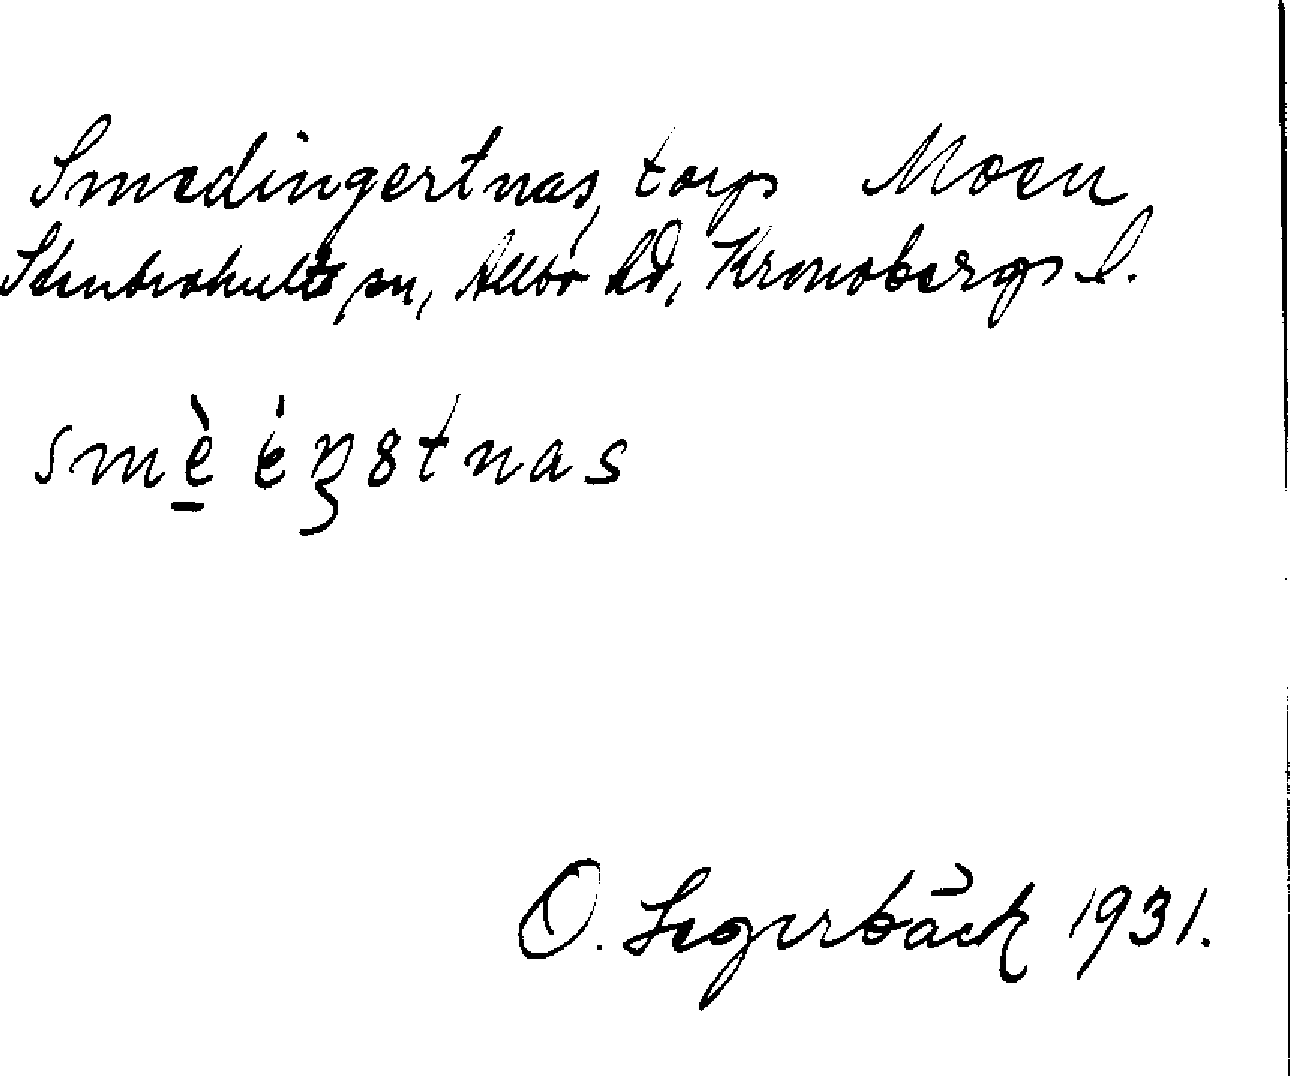 Smedingertnas, torp Moen
Stenbrohults sn, Allbo hd, Kronobergs l.
smè éŋstnas
O. Segerbäck 1931.